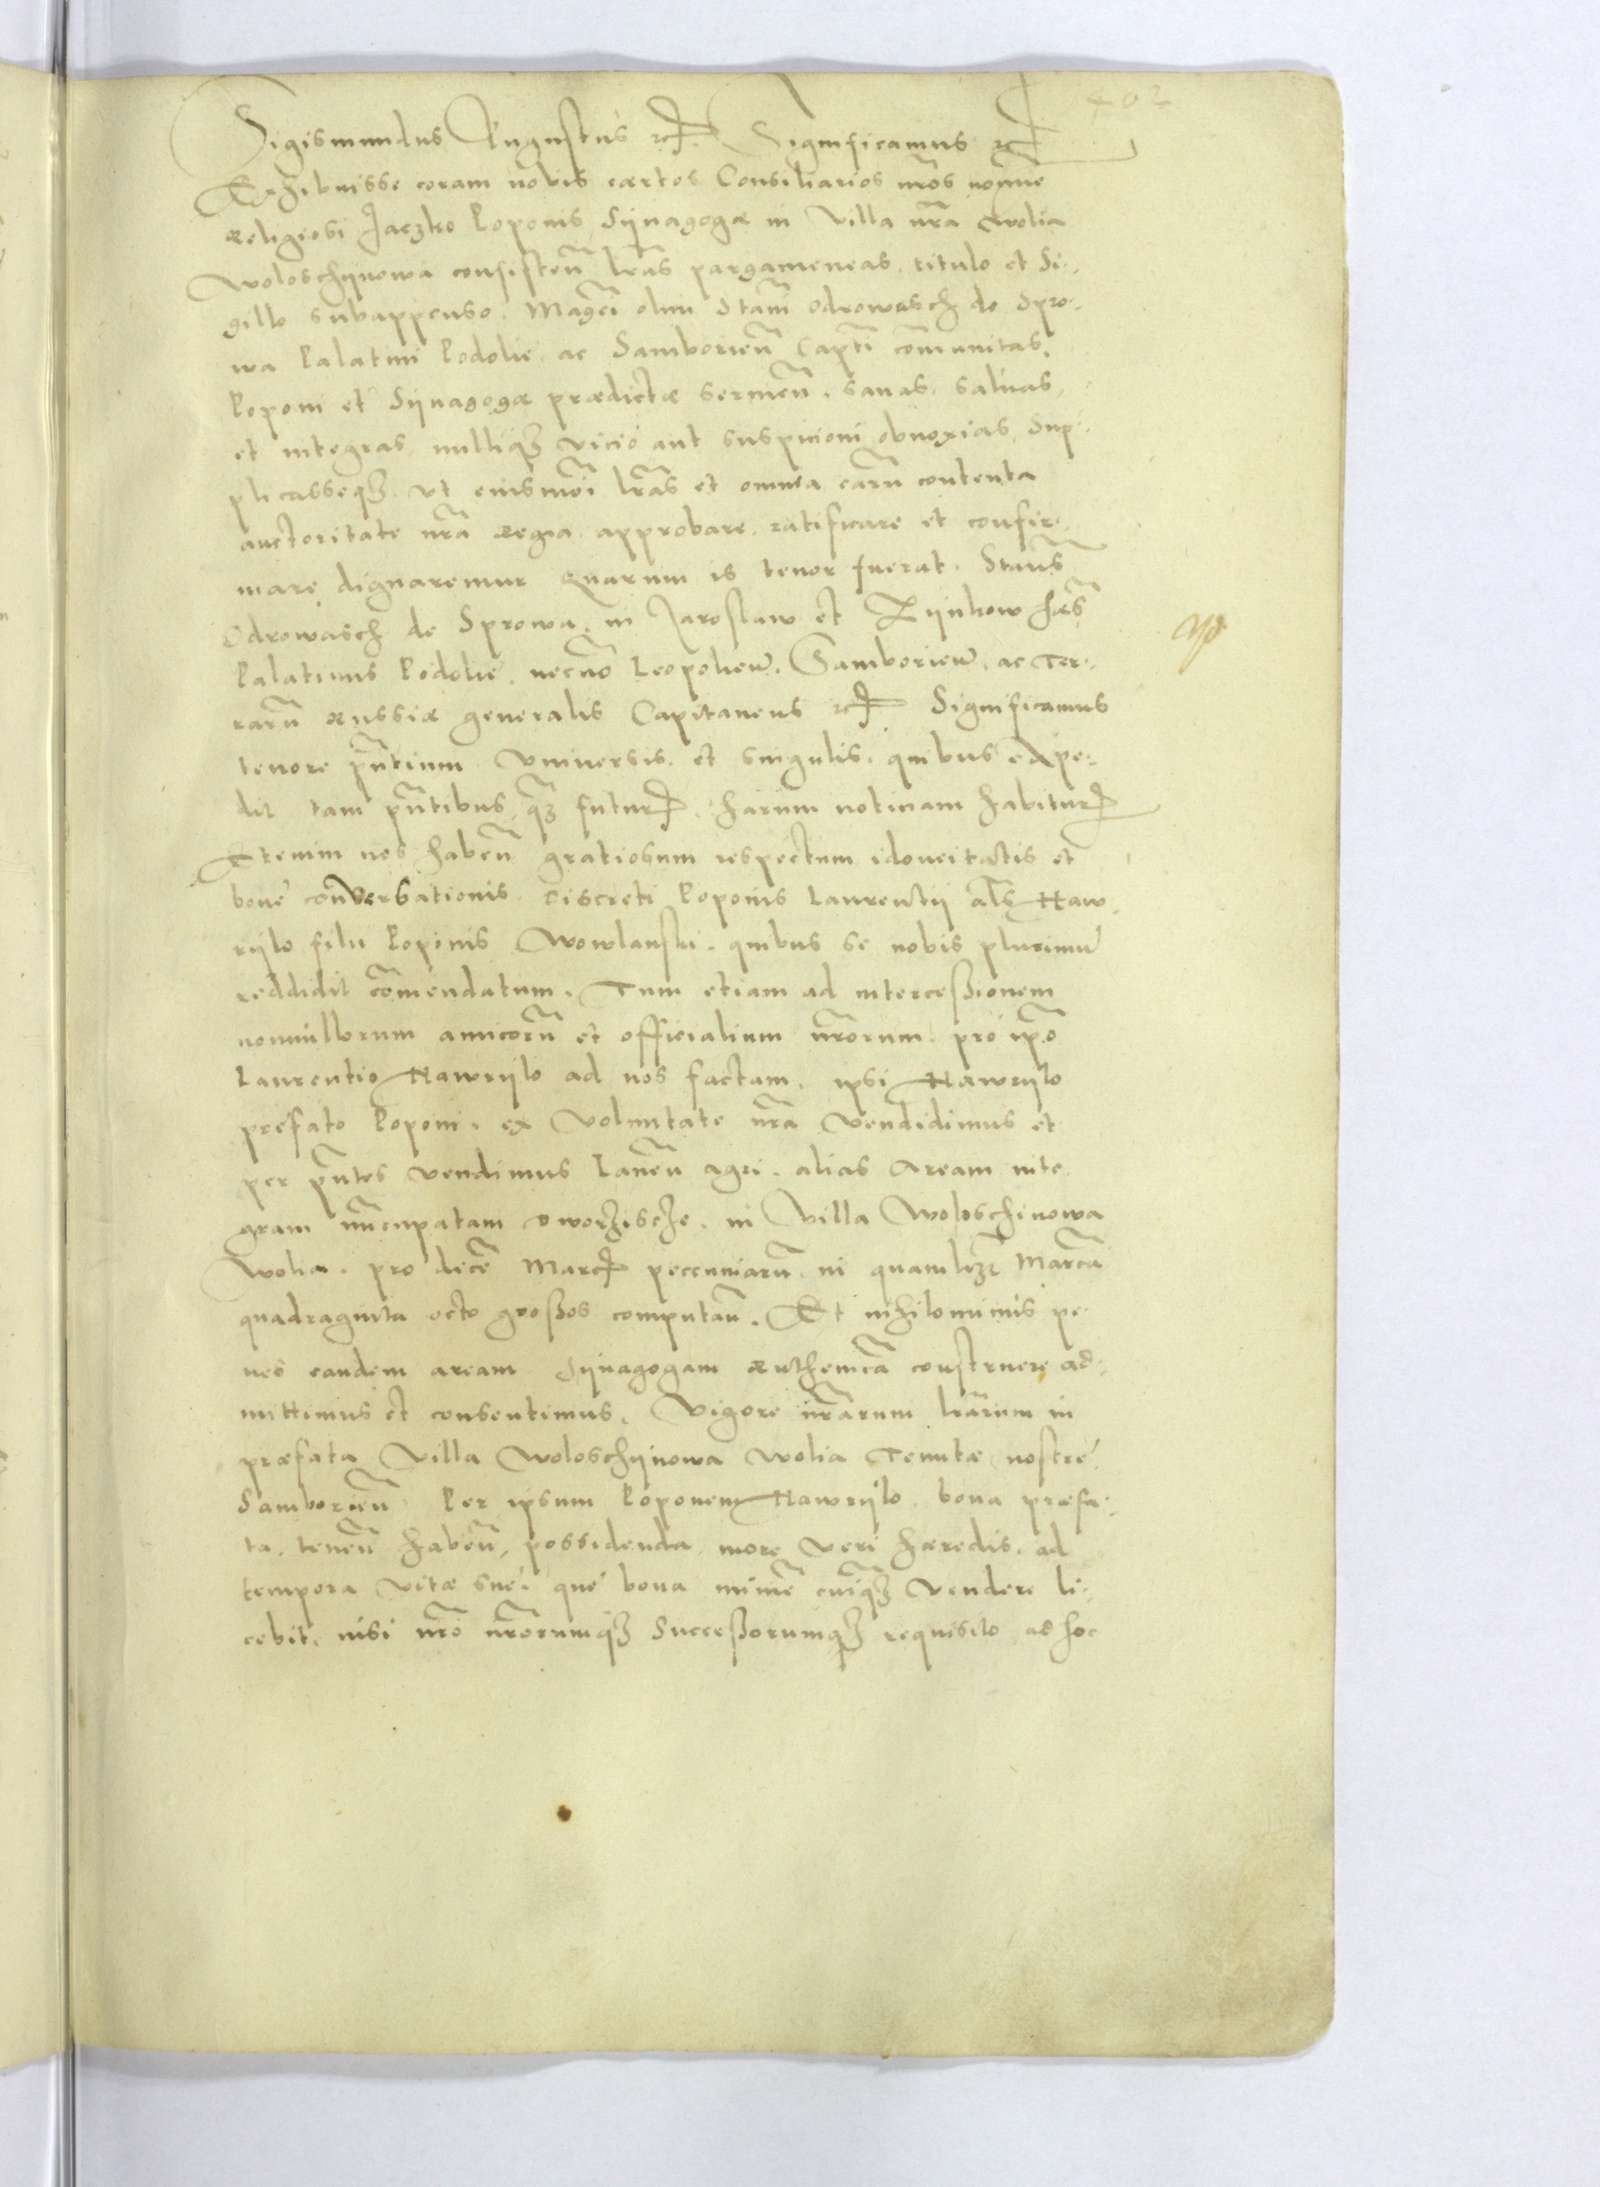 402
Sigismundus Augustus etc. Significamus etc.
Exhibuisse coram nobis certos Consiliarios nros nomine
Religiosi Jaczko Poponis Sÿnagogæ in Villa nra Wolia
Woloschÿnowa consisten lras pargameneas, titulo et Si-
gillo subappenso, Magci olim Stani Odrowasch de Spro-
wa Palatini Podolie, ac Samborien Capti communitas,
Poponi et Sÿnagogæ prædictæ servien, sanas, saluas,
et integras nulliqз vicio aut suspicioni obnoxias, Sup-
plicasseqз vt eiusmoi lras et omnia earu contenta
auctoritate nra Regia approbare, ratificare et confir-
mare dignaremur Quarum is tenor fuerat. Staus
Odrowasch de Sprowa, in Jaroslaw et Zÿnkow hæs
Palatinus Podolie, necno Leopolien, Samborien, ac Ter-
raru Russiæ generalis Capitaneus etc. Significamus
tenore pntium Vniuersis, et singulis, quibus expe-
dit tam pntibus qз futur, harum notitiam habitur
Etenim nos haben gratiosum respectum idoneitatis et
bone conversationis Discreti Poponis Laurentii als Haw-
rÿlo filii Poponis Wowlanski, quibus se nobis plurimu
reddidit comendatum, Tum etiam ad intercessionem
nonnullorum amicoru et officialium nrorum pro ipo
Laurentio Hawrÿlo ad nos factam, ipsi Hawrÿlo
prefato Poponi, ex Voluntate nra Vendidimus et
per pntes vendimus Laneu agri, alias Aream inte-
gram nuncupatam Dworzische, in Villa Woloschinowa
Wolia, pro dece Marc pecuniaru, in quamlizet Marca
quadraginta octo grossos computan, Et nihilominus pe-
nes eandem aream Sÿnagogam Ruthenica construere ad-
mittimus et consentimus, Vigore nrarum lrarum in
præfata Villa Woloschÿnowa Wolia Tenutæ nostre
Samborien Per ipsum Poponem Hawrÿlo bona præfa-
ta, tenen haben, possidenda more veri hæredis, ad
tempora vitæ sue, que bona minime cuiqз Vendere li-
cebit, nisi nro nrorumqз Successorumqз requisito ad hoc